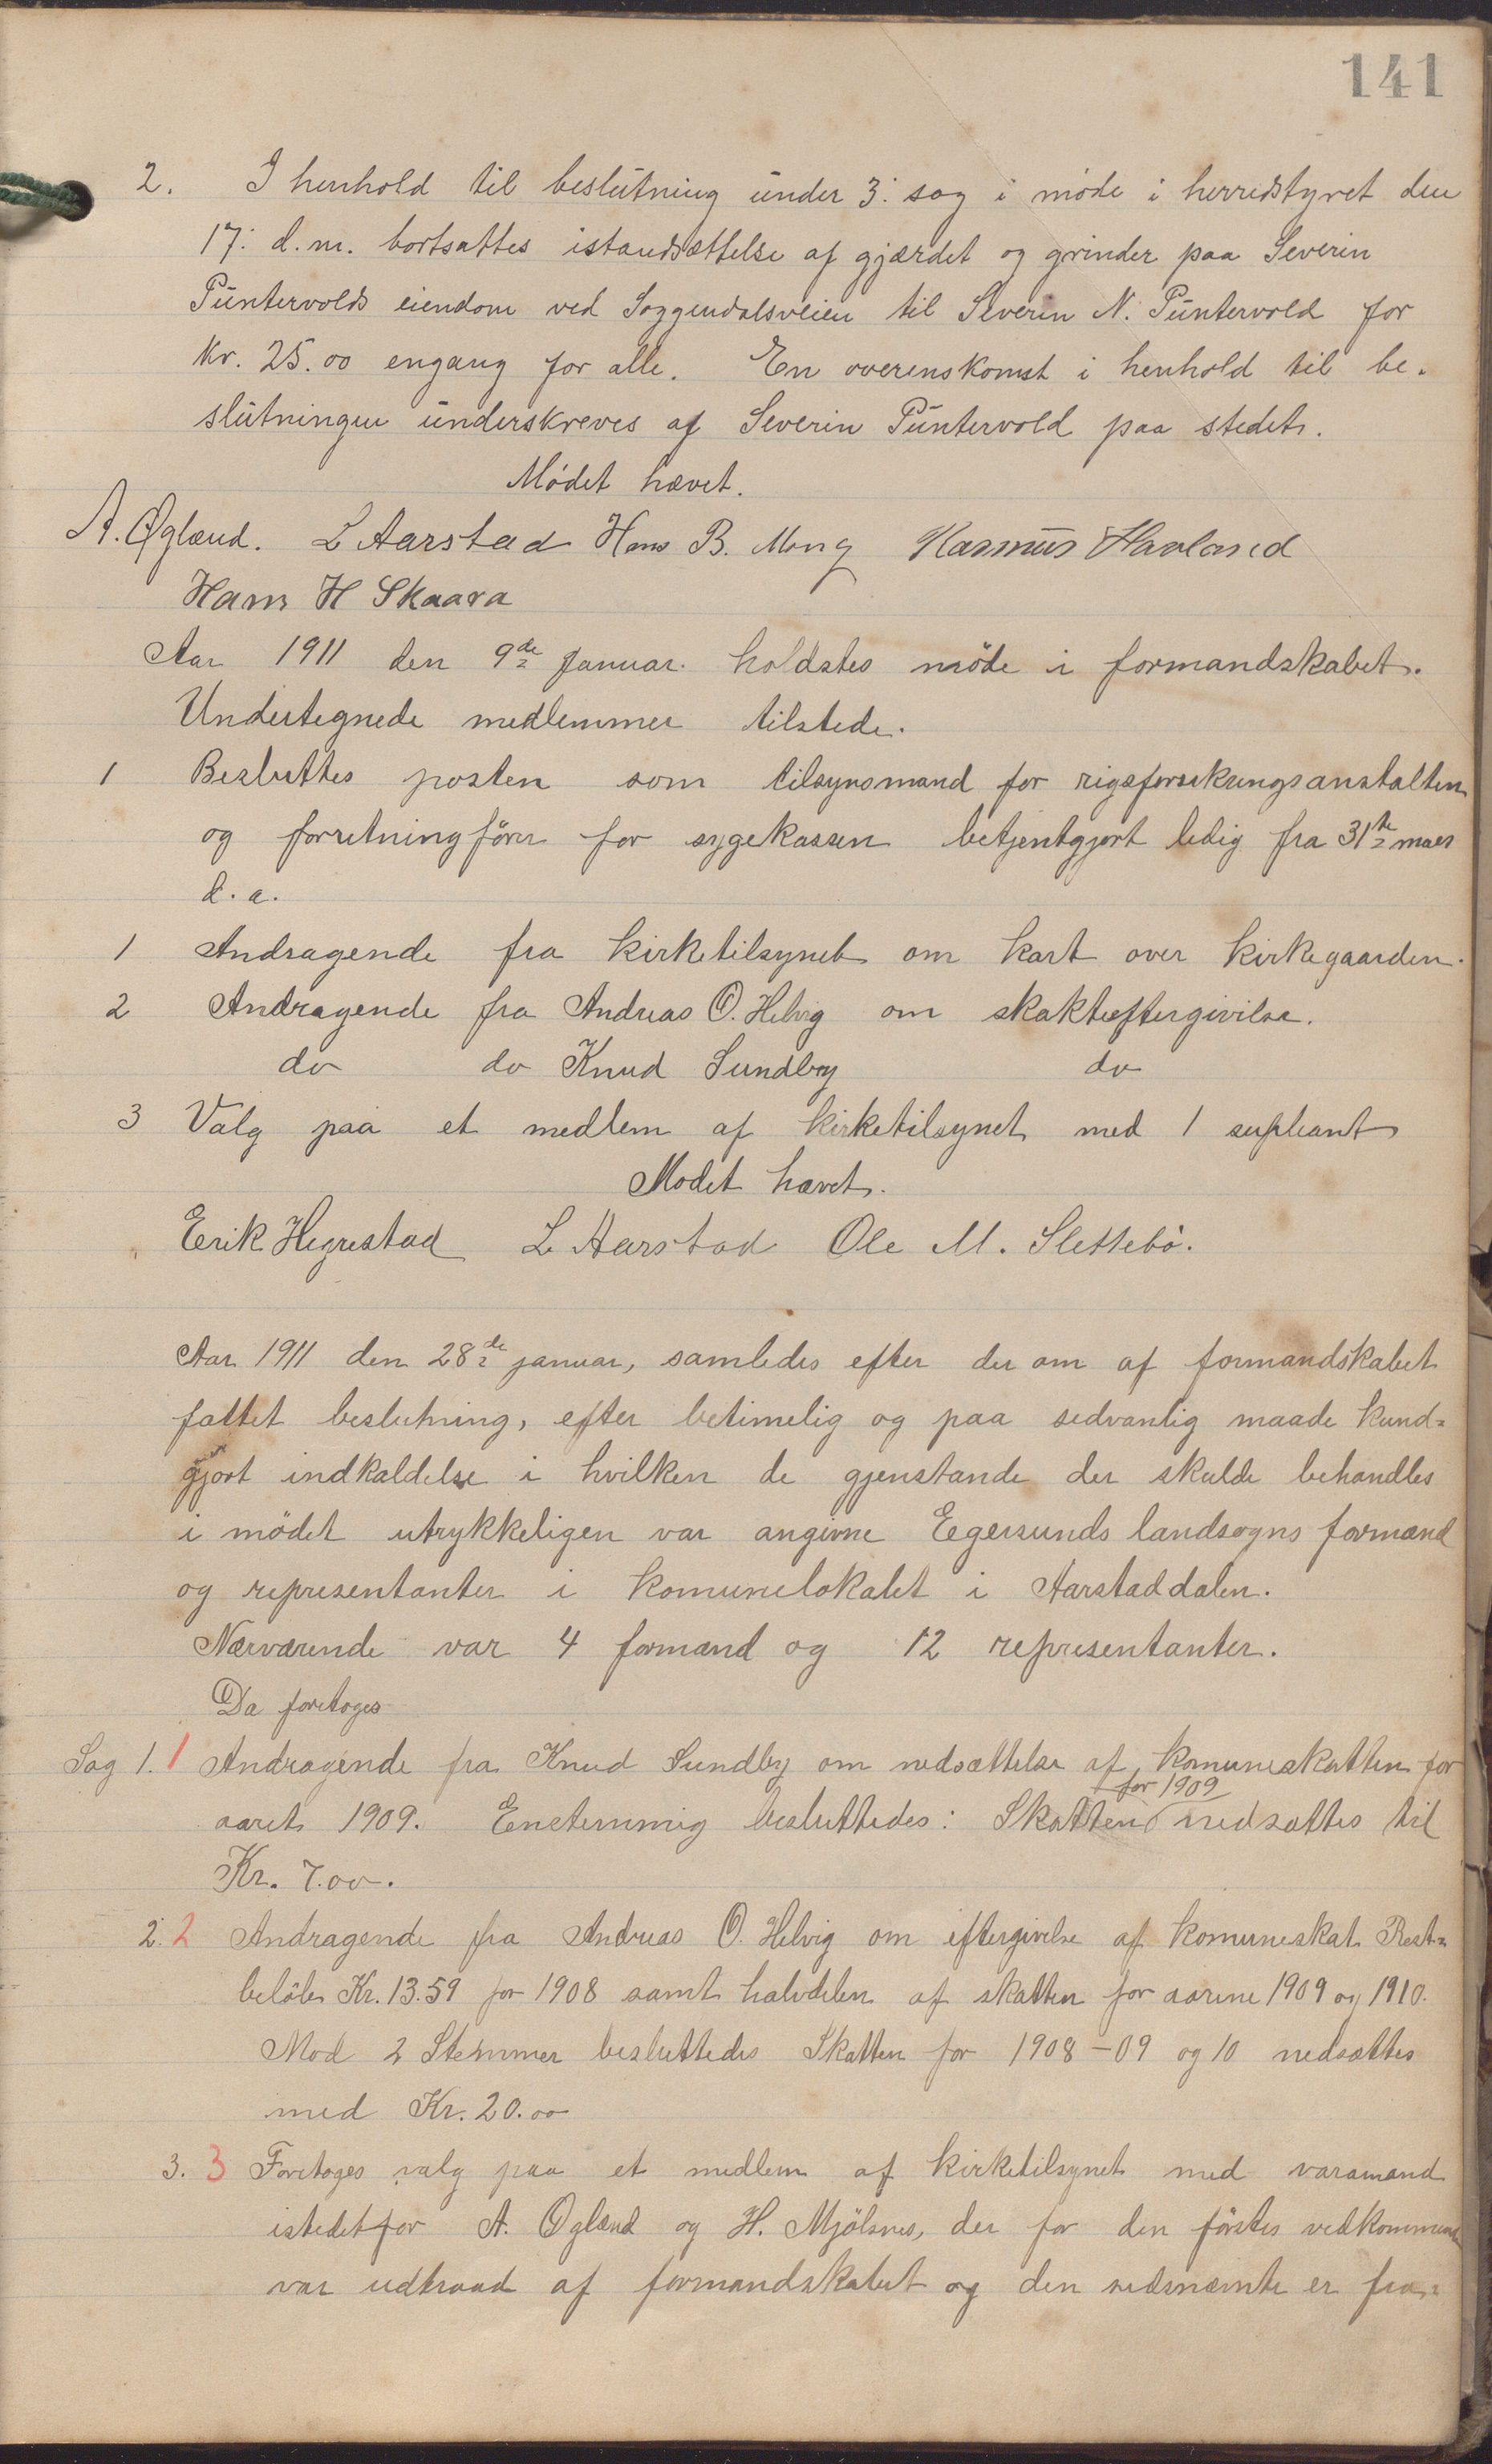 141
2. I henhold til beslutning under 3: sag i møde i herredstyret den
17: d.m. bortsattes istandsættelse af gjærdet og grinder paa Severin
Puntervolds eiendom ved Soggendalsveien til Severin N. Puntervold for
kr. 25.00 engang for alle. En overenskomst i henhold til be-
slutningen underskreves af Severin Puntervold paa stedet.
Mødet hævet.
A. Øglænd. L Aarstad Hans B. Mong Rasmus Havland
Hans H Skaara
Aar 1911 den 9de Januar. holdstes møde i formandskabet.
Undertegnede medlemmer tilstede.
1 Besluttes posten som tilsynsmand for rigsforsekringsanstalten
og forretningfører for sygekassen betjentgjort ledig fra 31te mars
d.a.
1 Andragende fra kirketilsynet om kart over kirkegaarden.
2 Andragende fra Andreas O. Helvig om skakteeftergivelse.
do do Knud Sundby do
3 Valg paa et medlem af kirketilsynet med 1 supleant
Modet hævet.
Erik Hegrestad L Aarstad Ole M. Slettebø.
Aar 1911 den 28de januar, samledes efter der om af formandskabet
fattet beslutning, efter betimelig og paa sedvanlig maade kund-
gjort indkaldelse i hvilken de gjenstande der skulde behandles
i mødet utrykkeligen var angivne Egersunds landsogns formænd
og representanter i komunelokalet i Aarstaddalen.
Nærværende var 4 formænd og 12 representanter.
Da foretoges
Sag 1. 1 Andragende fra Knud Sundby om nedsættelse af komuneskatten for
aaret 1909. Enstemmig besluttedes: Skatten for 1909 nedsættes til
Kr. 7.00.
2. 2 Andragende fra Andreas O. Helvig om eftergivelse af komuneskat Rest-
beløb Kr. 13.59 for 1908 samt halvdelen af skatten for aarene 1909 og 1910.
Mod 2 Stemmer besluttedes Skatten for 1908-09 og 10 nedsættes
med Kr. 20.00
3. 3 Foretoges valg paa et medlem af kirketilsynet med varamand
istedetfor A. Øglænd og H. Mjølsnes, der for den førstes vedkommende
var udtraad af formandskabet og den sidsnæmte er fra-